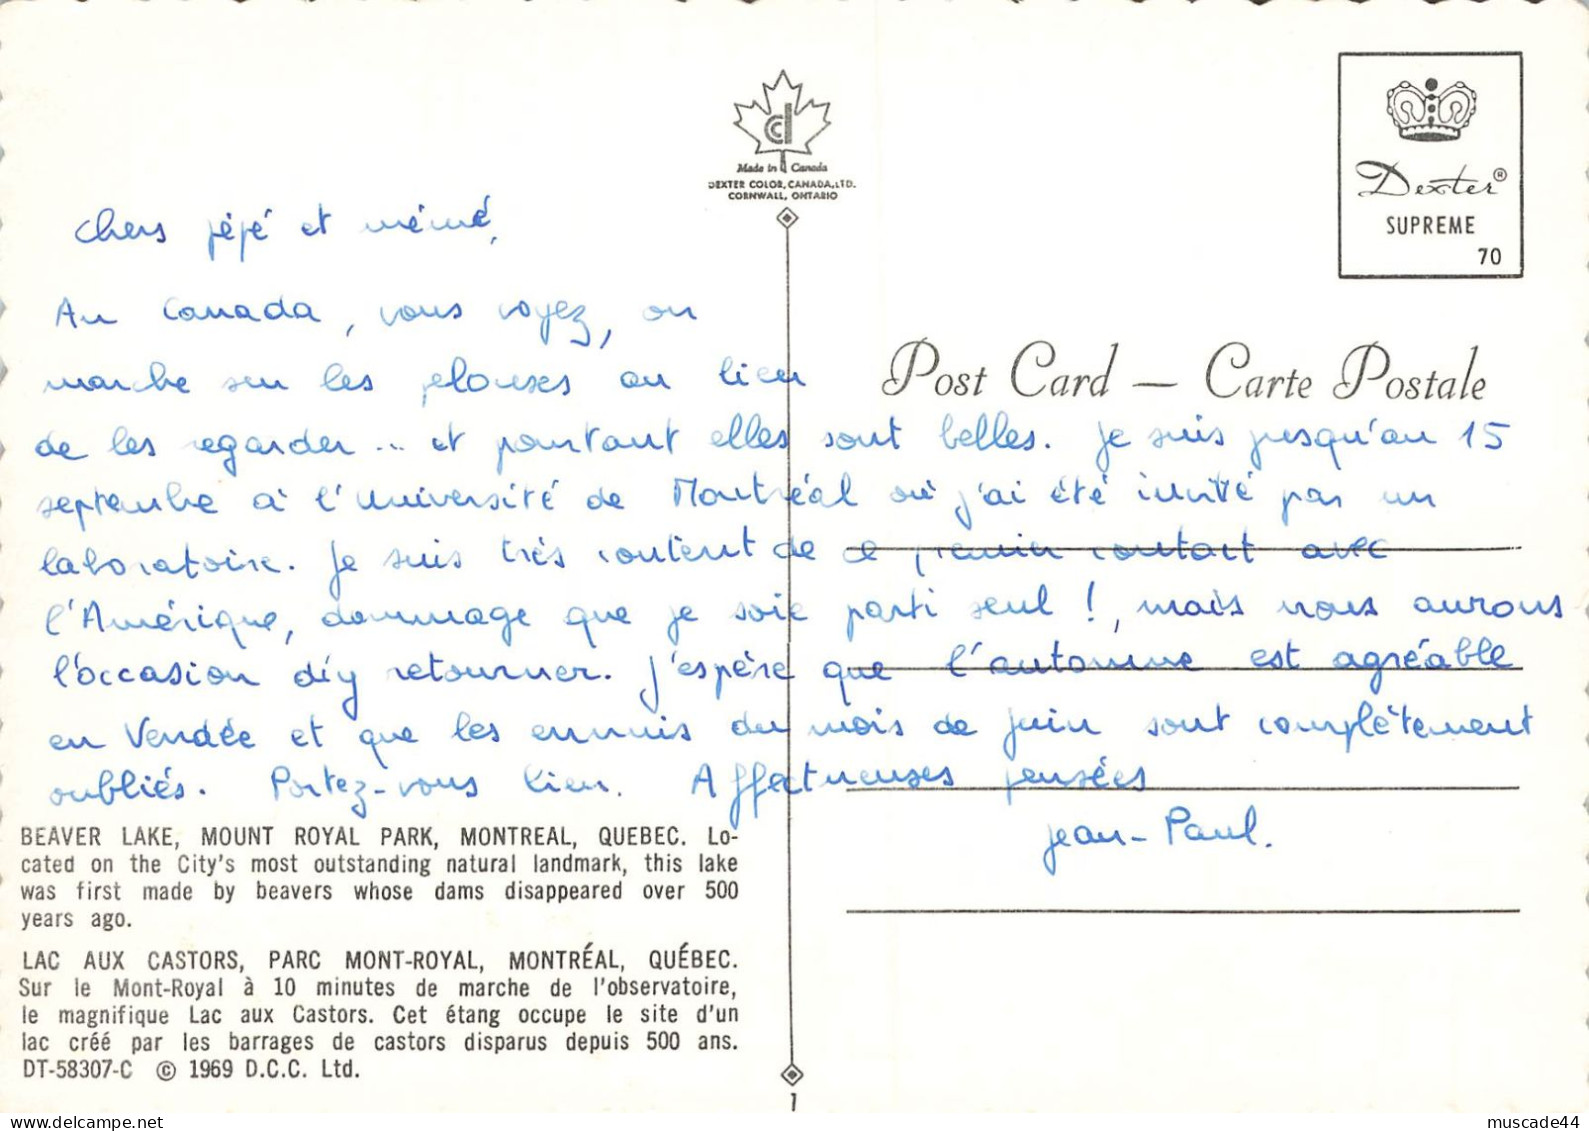 Made in Canada
DEXTER COLOR, CANADA, LTD.
CORNWALL, ONTARIO
Dexter®
SUPREME
70
Post Card — Carte Postale
Chers pépé et mémé,
Au Canada, vous voyez, on
marche sur les pelouses au lieu
de les regarder... et pourtant elles sont belles. Je suis jusqu'au 15
septembre à l'Université de Montréal où j'ai été invité par un
laboratoire. Je suis très content de ce premier contact avec
l'Amérique, dommage que je sois parti seul !, mais nous aurons
l'occasion d'y retourner. J'espère que l'automne est agréable
en Vendée et que les ennuis du mois de Juin sont complètement
oubliés. Portez-vous bien. Affectueuses pensées
Jean-Paul.
BEAVER LAKE, MOUNT ROYAL PARK, MONTREAL, QUEBEC. Lo-
cated on the City's most outstanding natural landmark, this lake
was first made by beavers whose dams disappeared over 500
years ago.
LAC AUX CASTORS, PARC MONT-ROYAL, MONTRÉAL, QUÉBEC.
Sur le Mont-Royal à 10 minutes de marche de l'observatoire,
le magnifique Lac aux Castors. Cet étang occupe le site d'un
lac créé par les barrages de castors disparus depuis 500 ans.
DT-58307-C © 1969 D.C.C. Ltd.
1
delcampe.net
muscade44